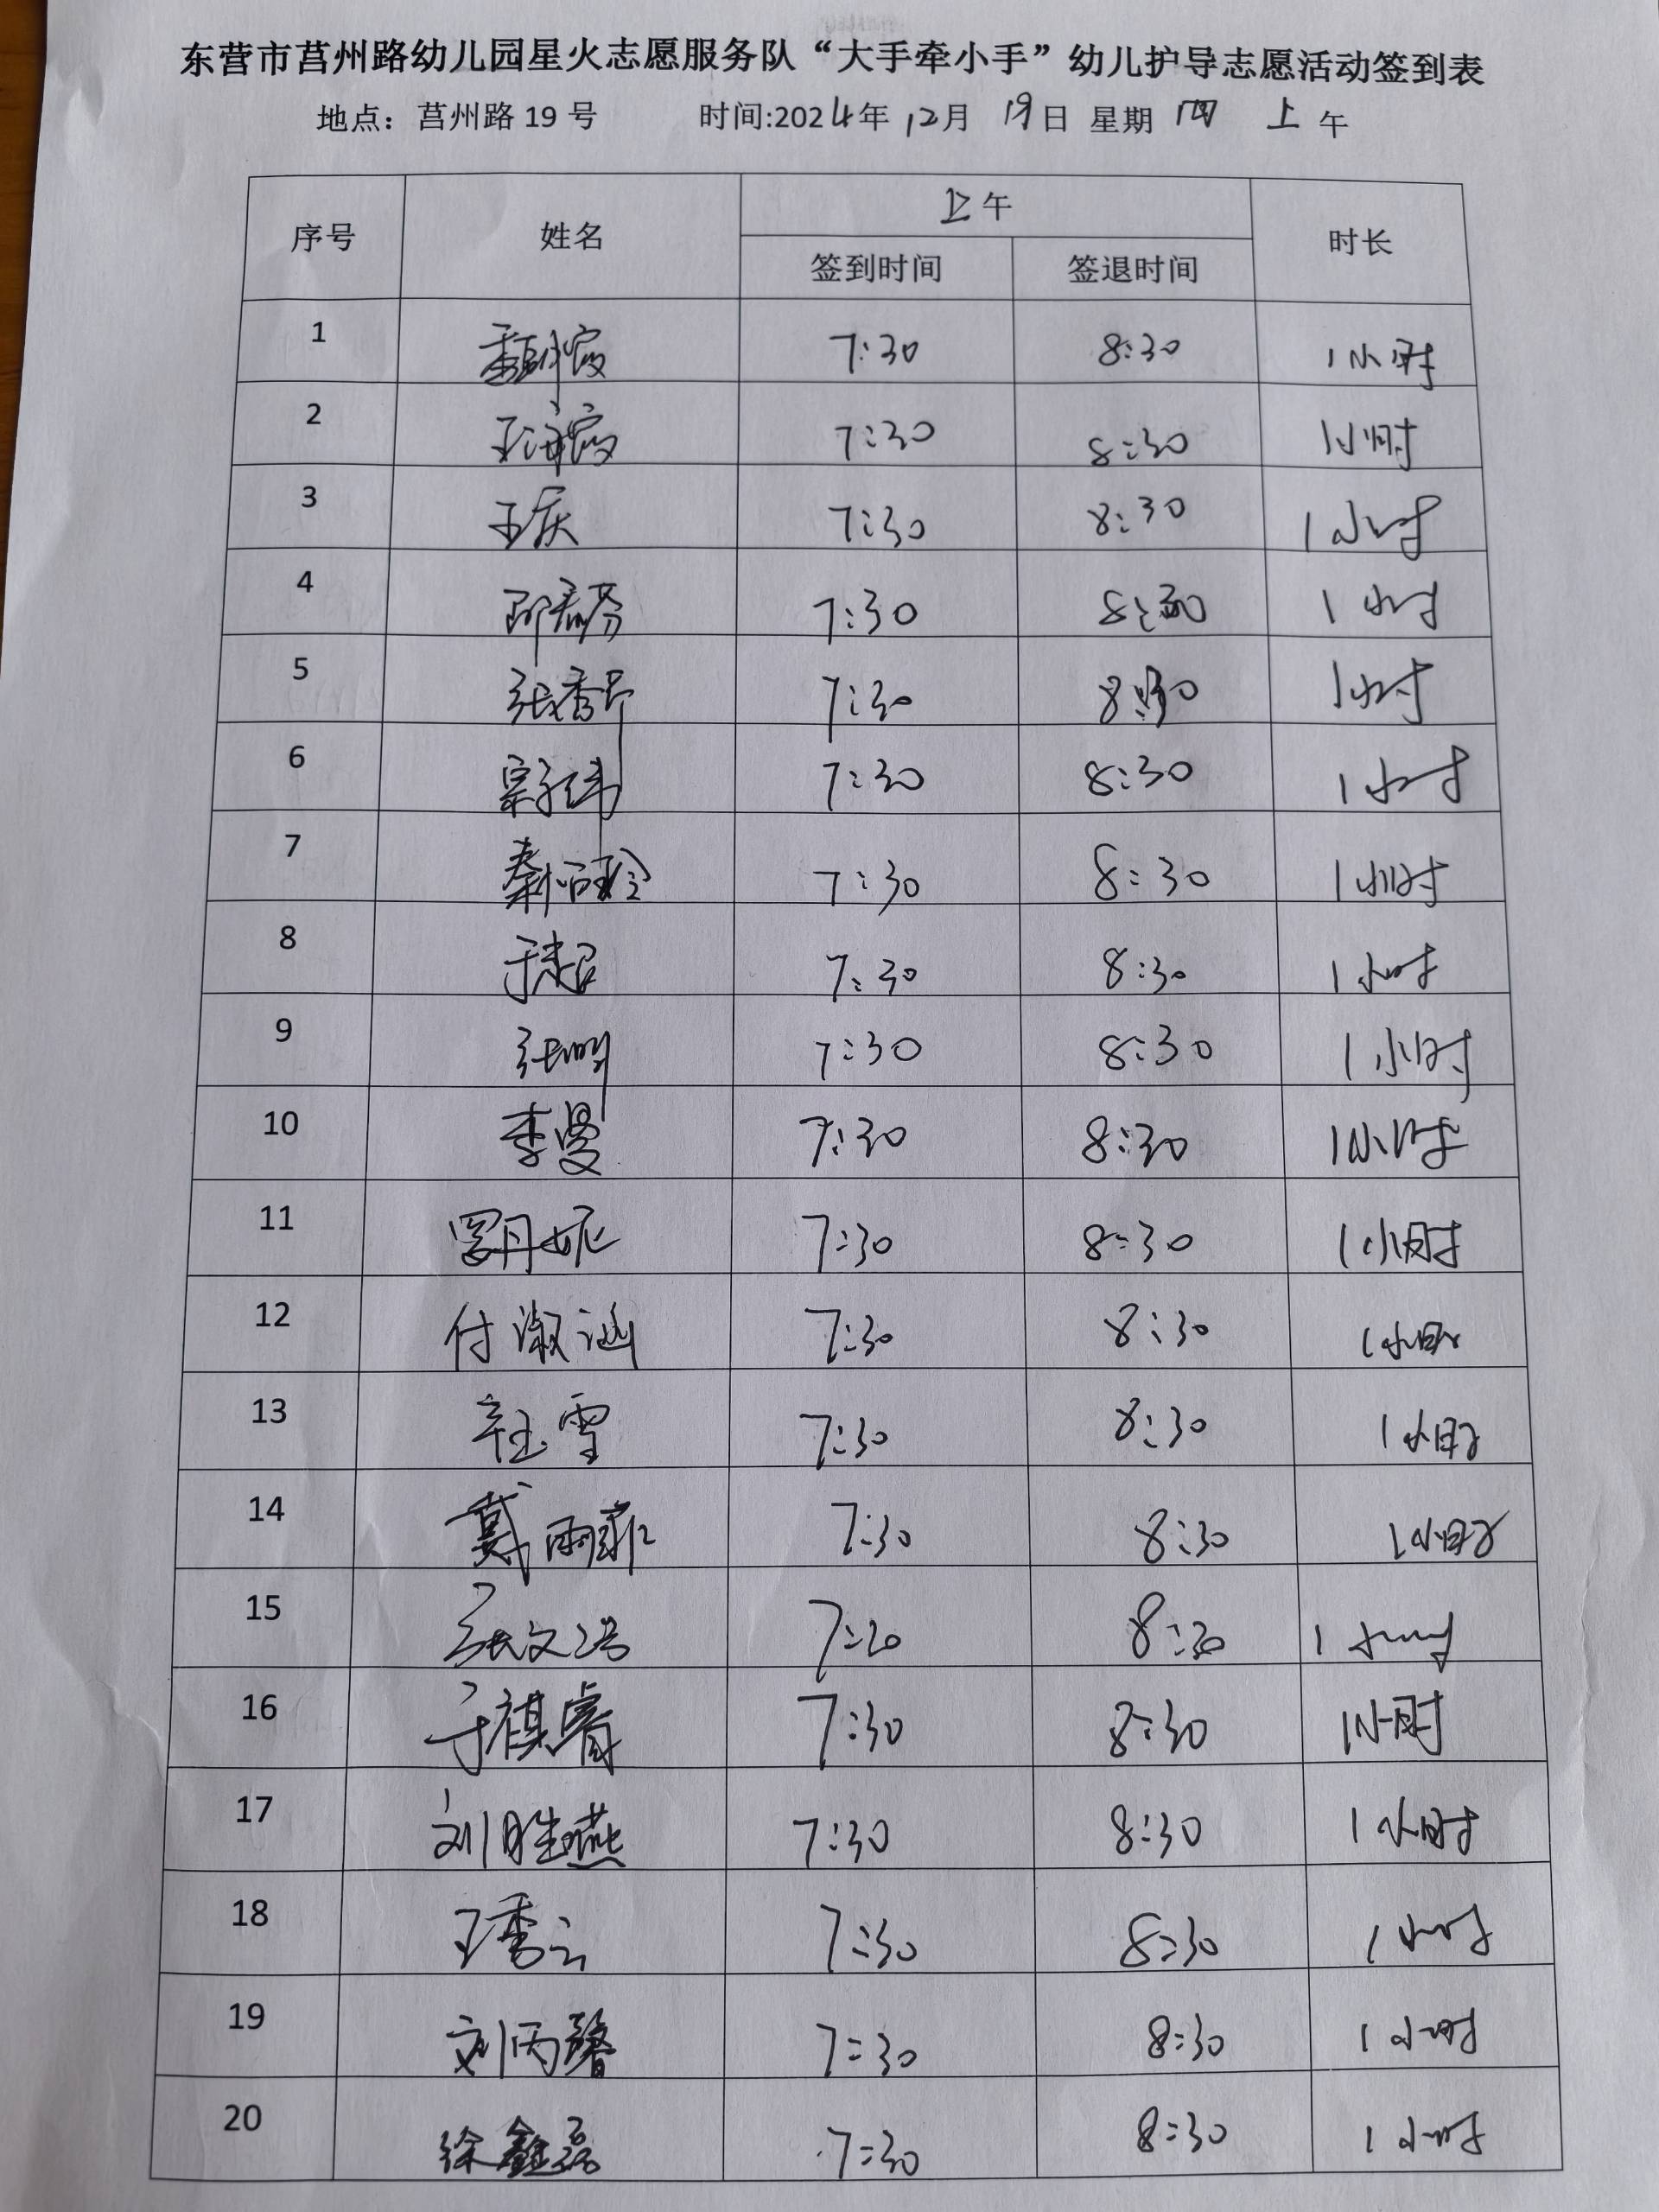 东营市莒州路幼儿园星火志愿服务队“大手牵小手”幼儿护导志愿活动签到表
地点：莒州路 19 号 时间:2024年 12月 19日 星期 四 上 午
序号 姓名 上午 时长
签到时间 签退时间
1 7:30 8:30 1小时
2 王海霞 7:30 8:30 1小时
3 王庆 7:30 8:30 1小时
4 7:30 8:30 1小时
5 张香 7:30 8:30 1小时
6 7:30 8:30 1小时
7 秦 7:30 8:30 1小时
8 7:30 8:30 1小时
9 张明 7:30 8:30 1小时
10 李曼 7:30 8:30 1小时
11 丹妮 7:30 8:30 1小时
12 付淑涵 7:30 8:30 1小时
13 雪 7:30 8:30 1小时
14 戴雨菲 7:30 8:30 1小时
15 张文 7:30 8:30 1小时
16 于祺睿 7:30 8:30 1小时
17 刘胜燕 7:30 8:30 1小时
18 王秀云 7:30 8:30 1小时
19 刘丙馨 7:30 8:30 1小时
20 徐鑫磊 7:30 8:30 1小时